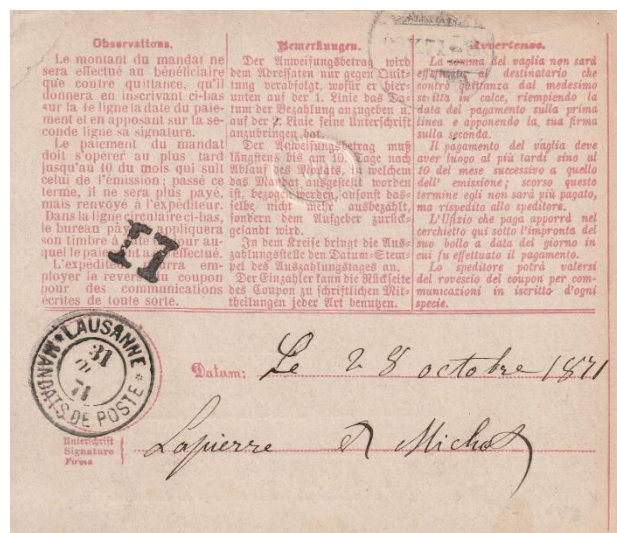 Observations.
Le montant du mandat ne
sera effectué au bénéficiaire
que contre quittance, qu'il
donnera en inscrivant ci-bas
sur la 1e ligne la date du paie-
ment et en apposant sur la se-
conde ligne sa signature.
Le paiement du mandat
doit s'operer au plus tard
jusqu'au 10 du mois qui suit
celui de l'émission; passé ce
terme, il ne sera plus payé,
mais renvoyé à l'expéditeur.
Dans la ligne circulaire ci-bas,
le bureau payeur appliquera
son timbre à date du jour au-
quel le paiement a été effectué.
L'expéditeur pourra em-
ployer le revers du coupon
pour des communications
écrites de toute sorte.
Bemerkungen.
Der Anweisungsbetrag wird
dem Adressaten nur gegen Quit-
tung verabfolgt, wofür er hier-
unten auf der 1. Linie das Da-
tum der Bezahlung anzugeben u.
auf der 2. Linie seine Unterschrift
anzubringen hat.
Der Anweisungsbetrag muß
längstens bis am 10. Tage nach
Ablauf des Monats, in welchem
das Mandat ausgestellt worden
ist, bezogen werden, ansonst das-
selbe nicht mehr ausbezahlt,
sondern dem Aufgeber zurück-
gesandt wird.
In dem Kreise bringt die Aus-
zahlungsstelle den Datum-Stem-
pel des Auszahlungstages an.
Der Einzahler kann die Rückseite
des Coupon zu schriftlichen Mit-
theilungen jeder Art benutzen.
Avvertenze.
La somma del vaglia non sarà
effettuata al destinatario che
contro quittanza dal medesimo
scritta in calce, riempiendo la
data del pagamento sulla prima
linea e apponendo la sua firma
sulla seconda.
Il pagamento del vaglia deve
aver luogo al più tardi sino al
10 del mese successivo a quello
dell' emissione; scorso questo
termine egli non sarà più pagato,
ma rispedito allo speditore.
L'Ufizio che paga apporrà nel
cerchietto qui sotto l'impronta del
suo bollo a data del giorno in
cui fu effettuato il pagamento.
Lo speditore potrà valersi
del rovescio del coupon per co-
municazioni in iscritto d'ogni
specie.
17
LAUSANNE
31
71
MANDATS DE POSTE
Datum: Le 28 octobre 1871
Unterschrift
Signature
Firma
Lapierre & Michot